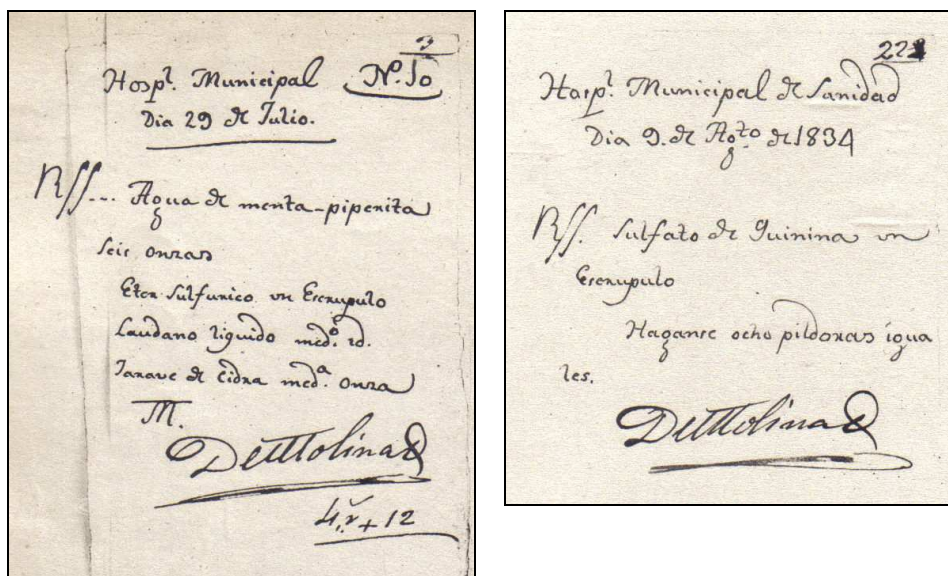 3
Hosp.l Municipal N.o 10
Dia 29 de Julio.
R//... Agua de menta-piperita
seis onzas
Eter sulfurico un Escrupulo
Laudano liquido med.o id.
Jarave de Cidra med.a onza
M.
Hosp.l Municipal de Sanidad
Dia 9. de Ag.to de 1834
R//. Sulfato de Quinina un
Escrupulo
Haganse ocho pildoras igua
les.